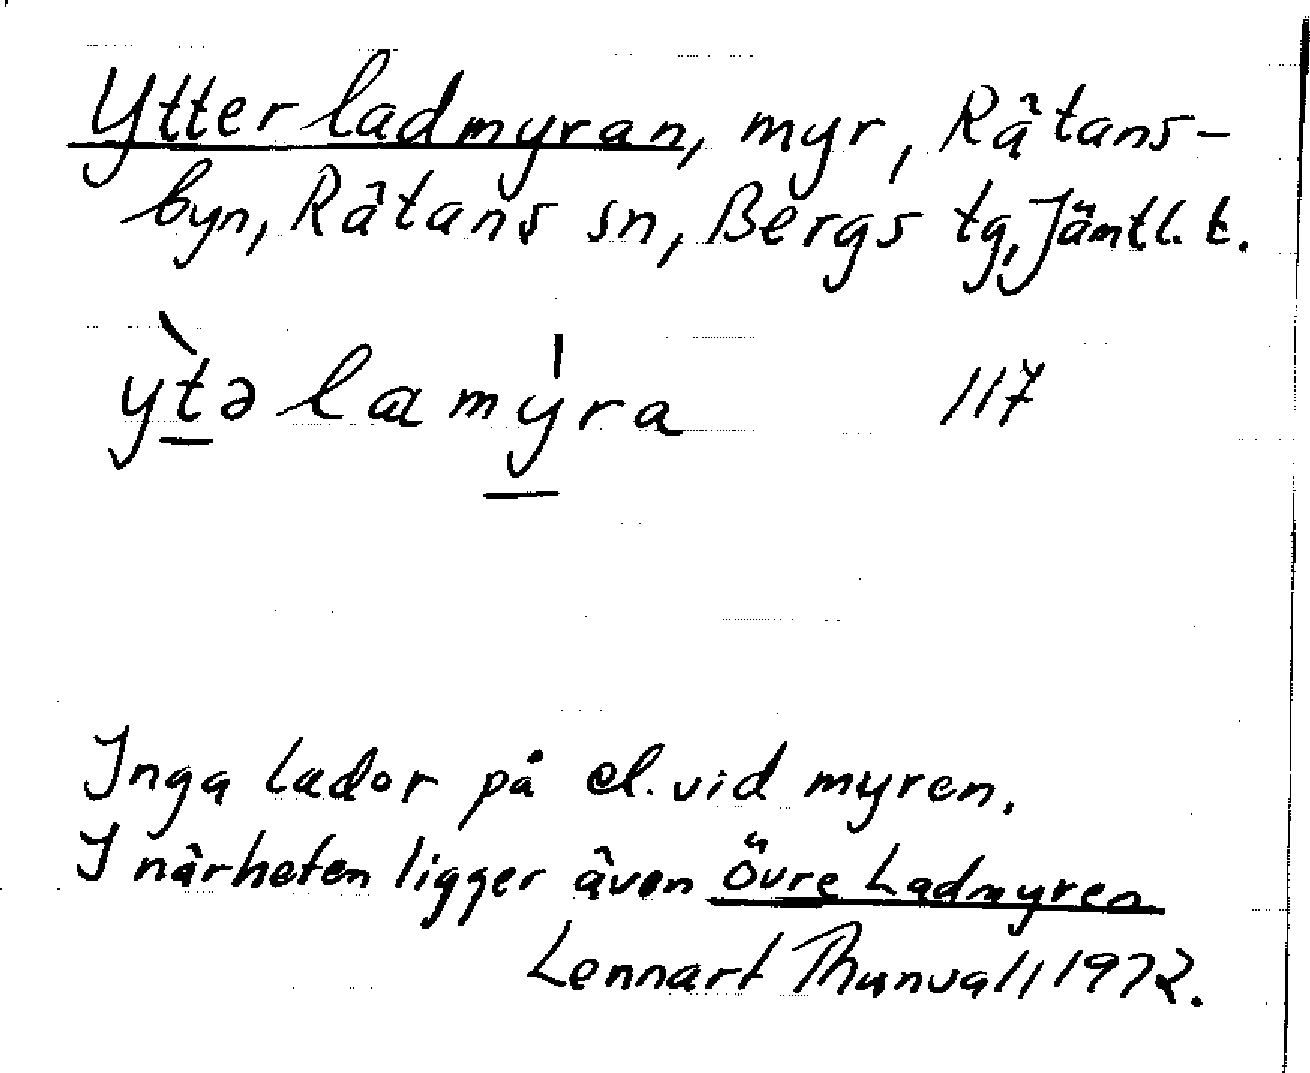 Ytterladmyran, myr, Råtans-
byn, Råtans sn, Bergs tg, Jämtl. l.
y̖tə lamýra 117
Inga lador på el. vid myren.
I närheten ligger även Övre Ladmyren
Lennart Thunvall 1972.